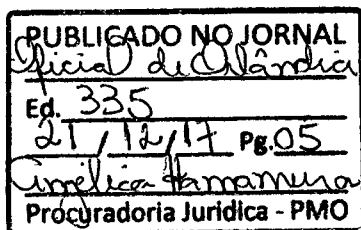 PUBLICADO NO JORNAL
Oficial de Orlândia
Ed. 335
21 / 12 / 17 Pg. 05
Angélica Hamamura
Procuradoria Jurídica - PMO